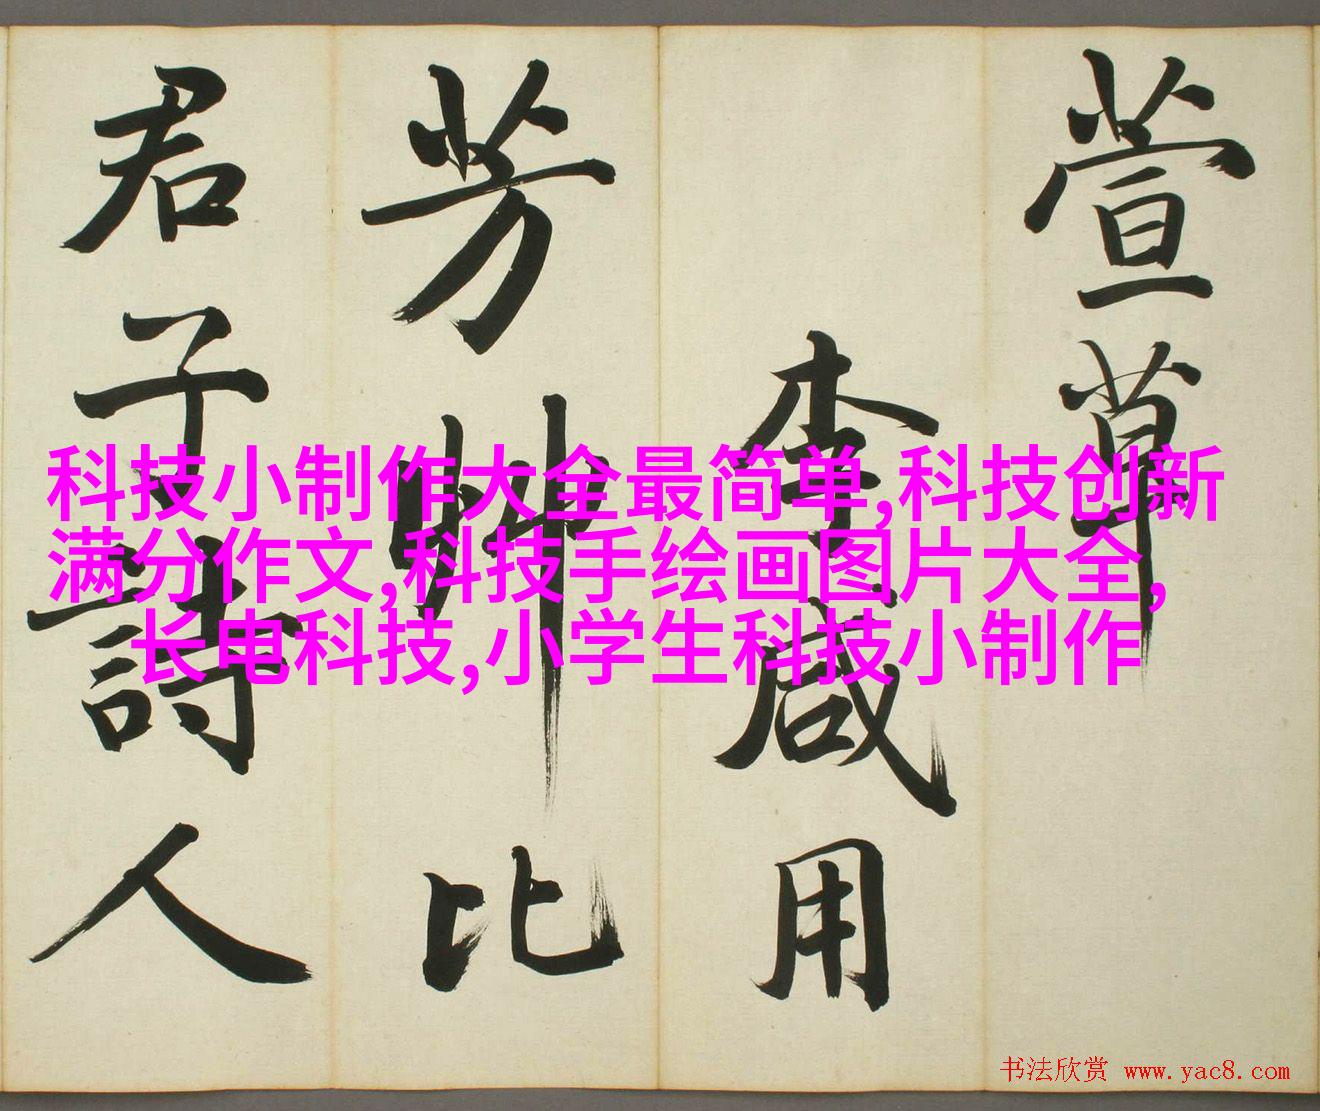 萱草
李咸用
芳艸比
君子詩人
科技小制作大全最简单,科技创新
满分作文,科技手绘画图片大全,
长电科技,小学生科技小制作
书法欣赏 www.yac8.com